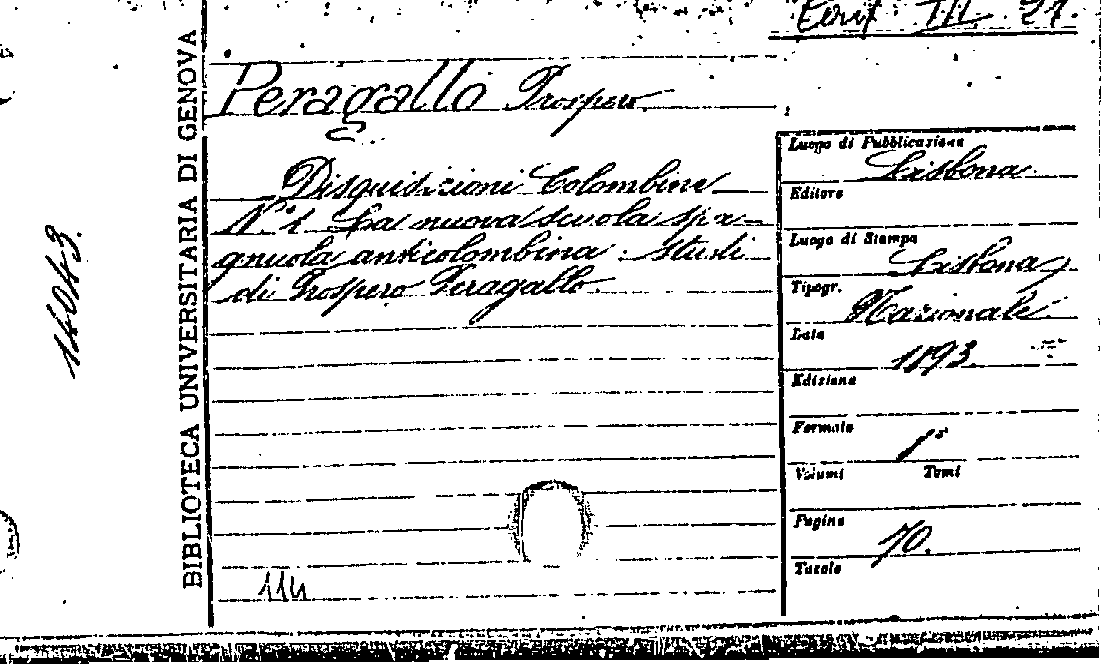 III 21.
BIBLIOTECA UNIVERSITARIA DI GENOVA
14043.
Peragallo Prospero
Disquisizioni Colombine
N.° 1 La nuova scuola spa-
gnuola anticolombina: studi
di Prospero Peragallo
114
Luogo di Pubblicazione
Lisbona
Editore
Luogo di Stampa
Lisbona
Tipogr.
Nazionale
Data
1893
Edizione
Formato
Volumi Tomi
Pagine
70.
Tavole